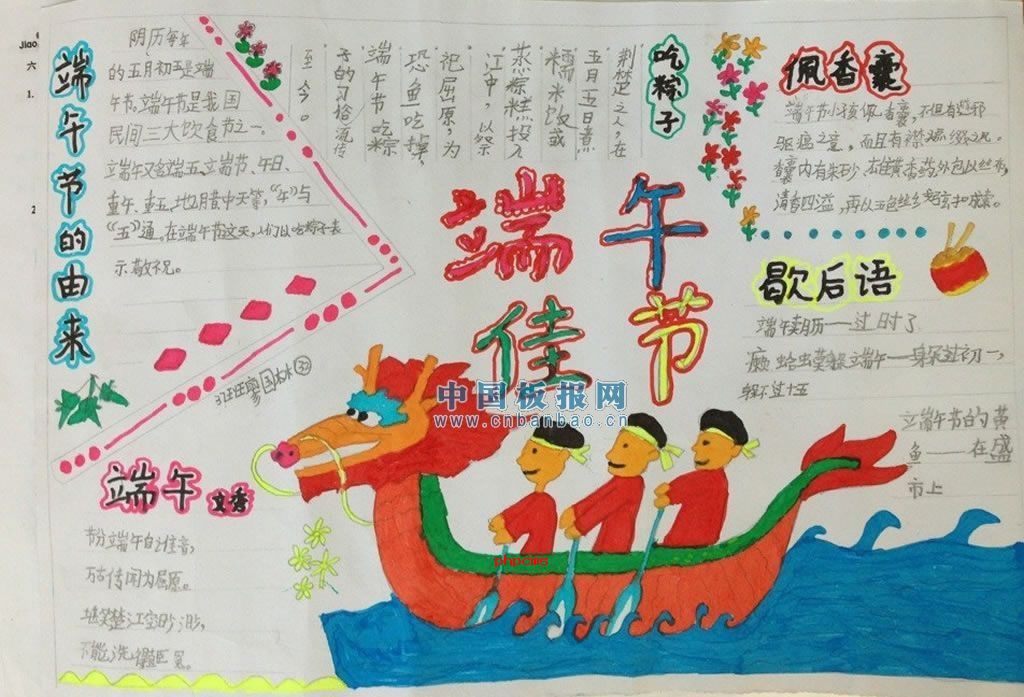 Jiao
六
1.
2
端午节的由来
阴历每年
的五月初五是端
午节。端午节是我国
民间三大饮食节之一。
立端午又名端五、立端节、午日、
重午、重五、地月昔中天等，“午”与
“五”通。在端午节这天，人们以吃粽子表
示敬祝。
吃粽子
荆楚之人，在
五月五日煮
糯米饭或
蒸粽糕投入
江中，以祭
祀屈原，为
恐鱼吃掉，
端午节吃粽
子的习俗流传
至今。
佩香囊
端午节小孩佩香囊，不但有避邪
驱瘟之意，而且有襟头点缀之风。
香囊内有朱砂、雄黄香药，外包以丝布，
清香四溢，再以五色丝线弦扣成索。
端午
佳节
歇后语
端午卖月历——过时了
癞蛤虫莫躲立端午——躲过初一，
躲不过十五
立端午节的黄
鱼——在盛
市上
中国板报网
www.cnbanbao.cn
phpcms
端午 文秀
节分端午自谁言，
万古传闻为屈原。
堪笑楚江空渺渺，
不能洗得直臣冤。